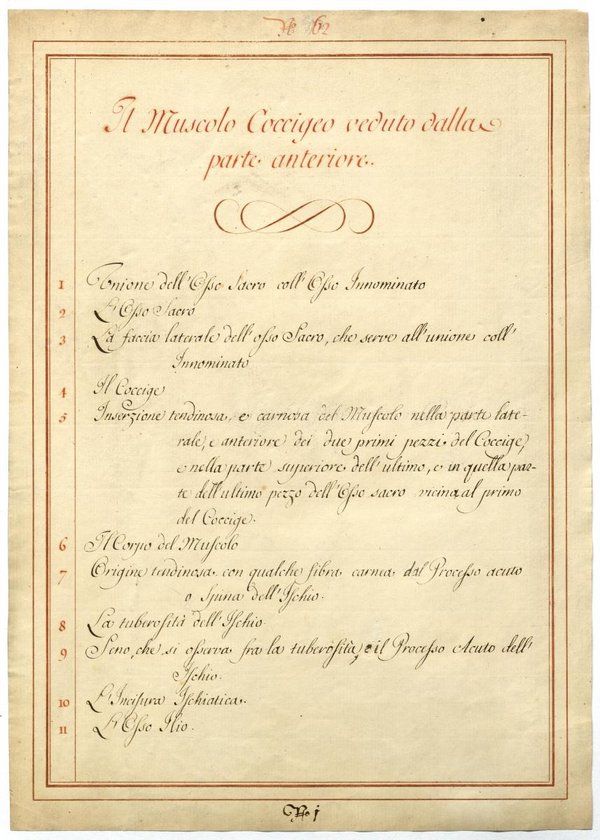 No 162
Il Muscolo Coccigeo veduto dalla
parte anteriore.
1 Unione dell'Osso Sacro coll'Osso Innominato
2 L'Osso Sacro
3 La faccia laterale dell'osso Sacro, che serve all'unione coll'
Innominato
4 Il Coccige
5 Inserzione tendinosa, e carnosa del Muscolo nella parte late-
rale, e anteriore dei due primi pezzi del Coccige,
e nella parte superiore dell'ultimo, e in quella par-
te dell'ultimo pezzo dell'Osso sacro vicina al primo
del Coccige.
6 Il Corpo del Muscolo
7 Origine tendinosa con qualche fibra carnea dal Processo acuto
o Spina dell'Ischio.
8 La tuberosità dell'Ischio.
9 Seno, che si osserva fra la tuberosità, e il Processo Acuto dell'
Ischio.
10 L'Incisura Ischiatica.
11 L'Osso Ilio.
No 1